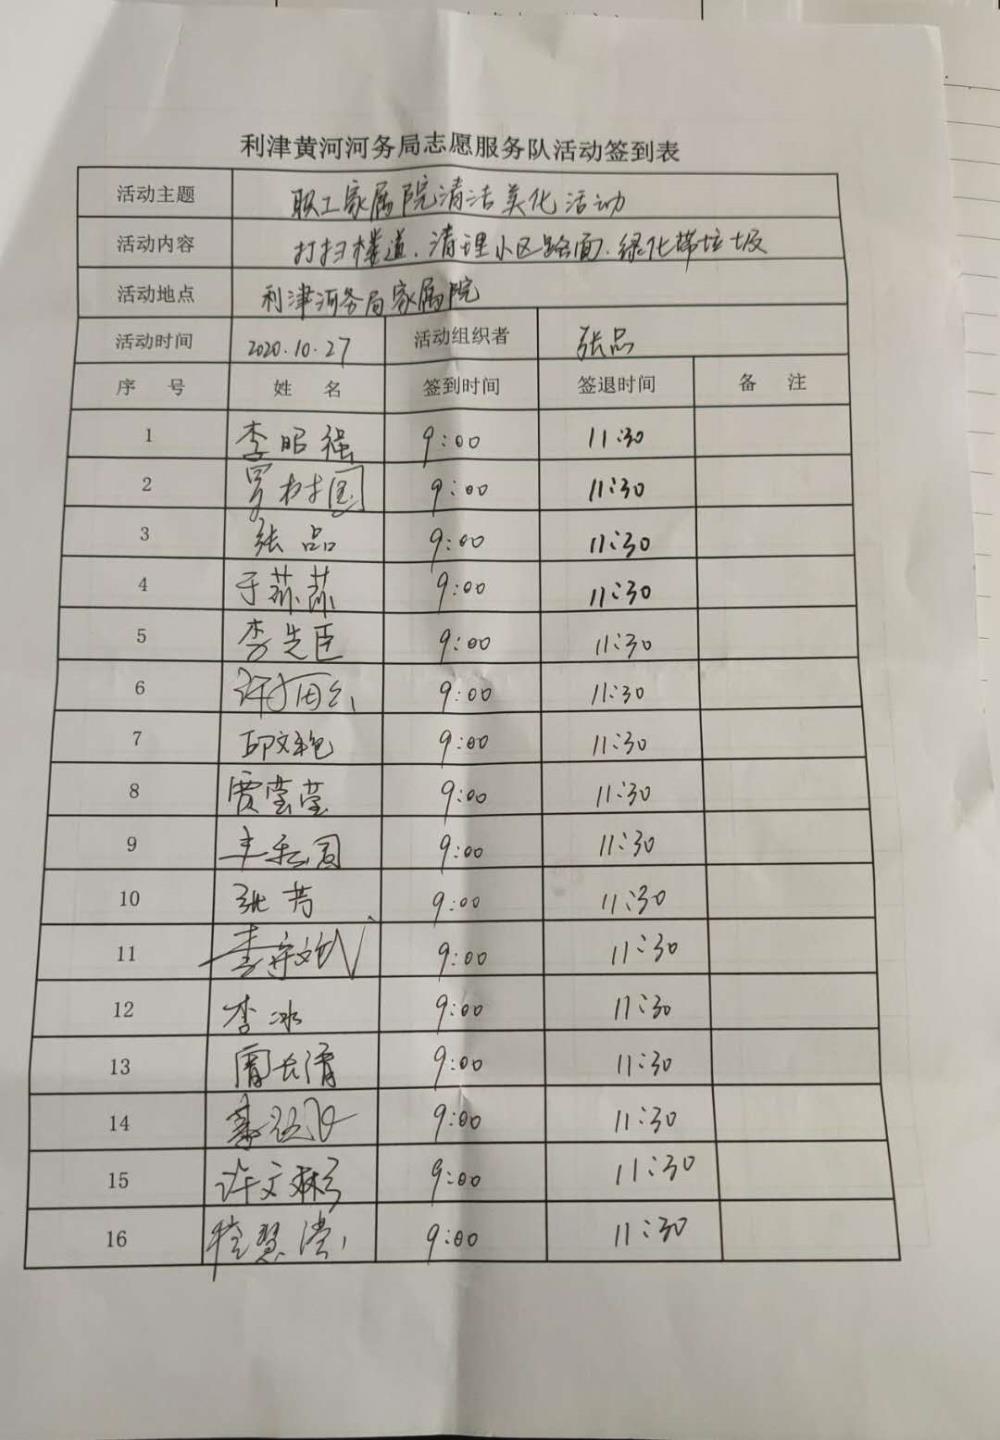 利津黄河河务局志愿服务队活动签到表
活动主题 职工家属院清洁美化活动
活动内容 打扫楼道、清理小区路面、绿化带垃圾
活动地点 利津河务局家属院
活动时间 2020.10.27 活动组织者 张品
序 号 姓 名 签到时间 签退时间 备 注
1 李昭强 9:00 11:30
2 罗树国 9:00 11:30
3 张品 9:00 11:30
4 于荪荪 9:00 11:30
5 李先臣 9:00 11:30
6 许 9:00 11:30
7 邱文艳 9:00 11:30
8 贾莹莹 9:00 11:30
9 9:00 11:30
10 张芳 9:00 11:30
11 李 9:00 11:30
12 李冰 9:00 11:30
13 9:00 11:30
14 9:00 11:30
15 许文彬 9:00 11:30
16 慧 9:00 11:30